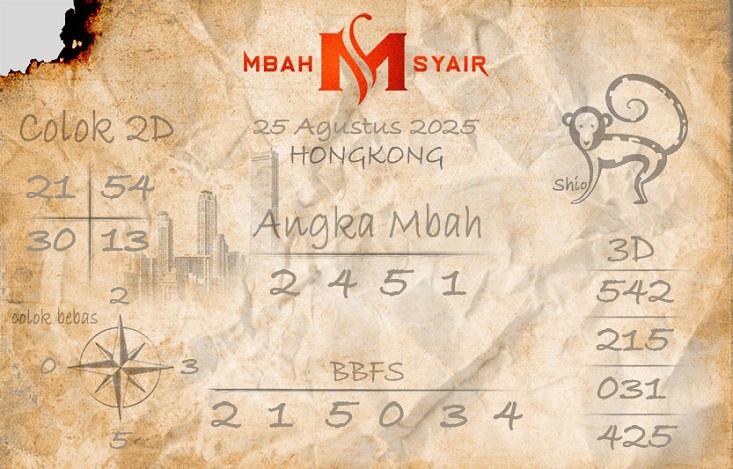 MBAH M SYAIR
Colok 2D
21 54
30 13
25 Agustus 2025
HONGKONG
Shio
Angka Mbah
2 4 5 1
3D
542
215
031
425
2
colok bebas
0 3
5
BBFS
2 1 5 0 3 4